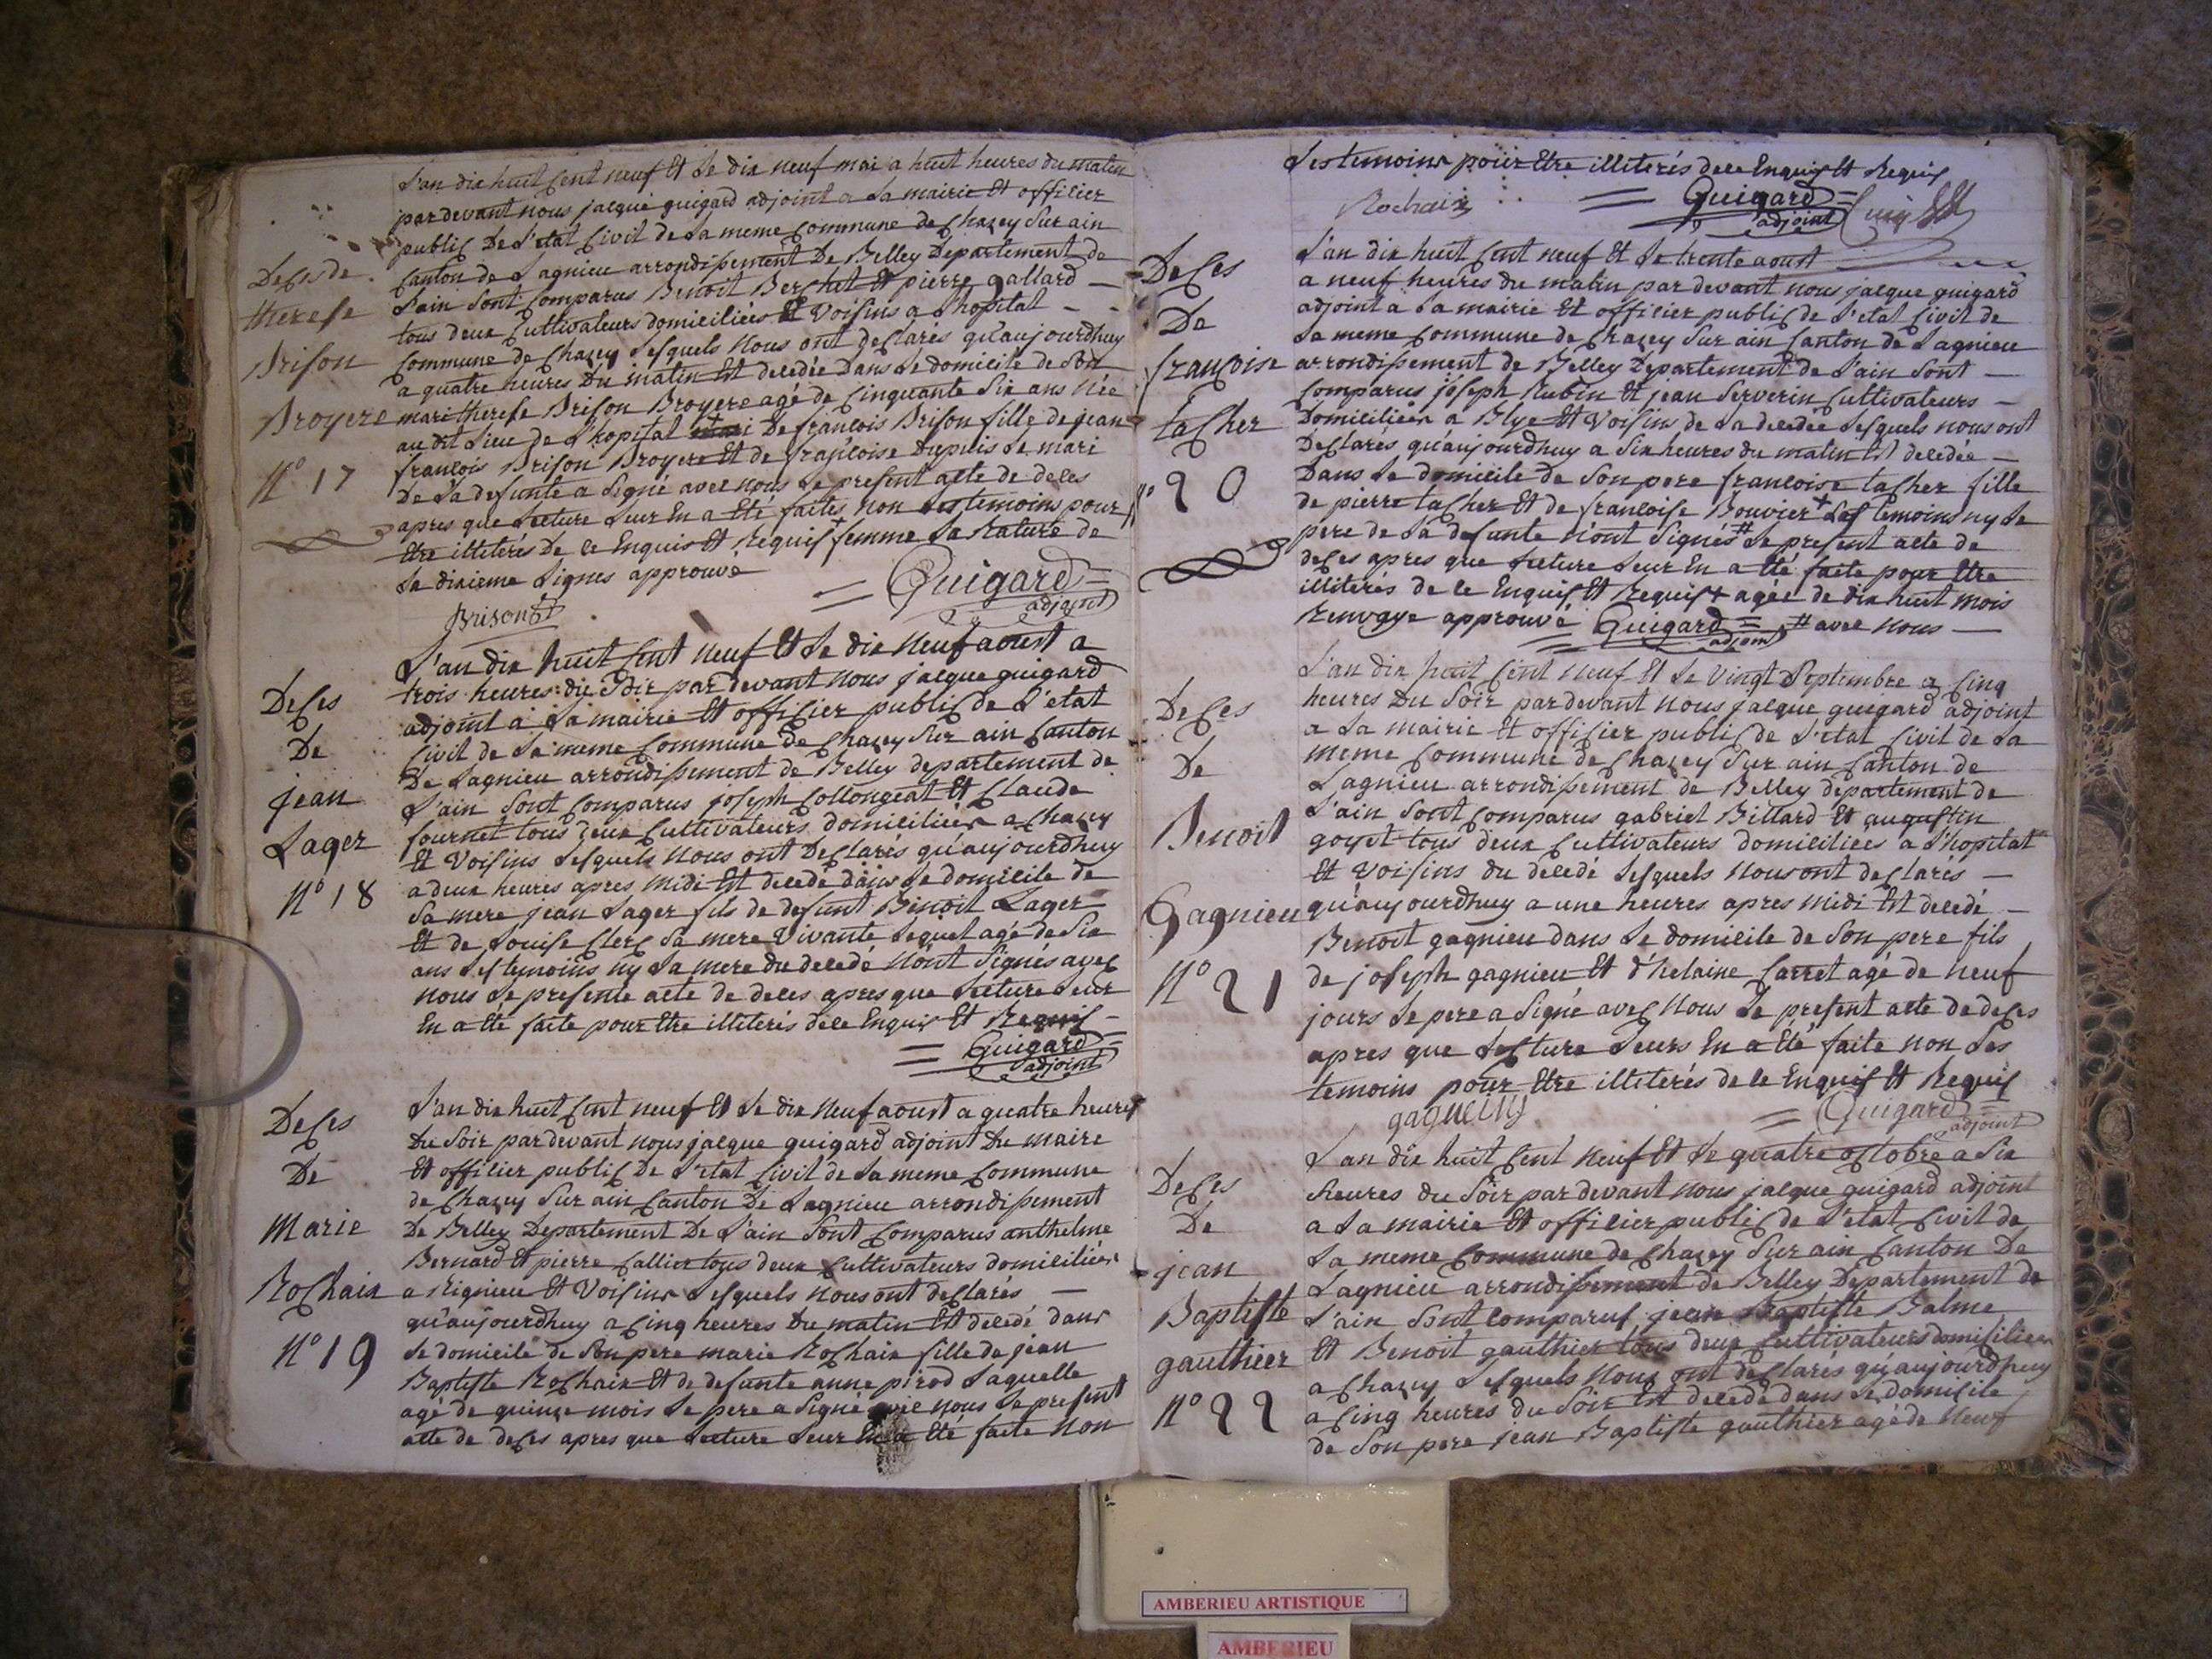 L'an dix huit Cent neuf Et Le dix neuf mai a huit heures du matin
par devant nous jacque guigard adjoint a La mairie Et officier
public De L'etat Civil de La meme Commune de Chazey Sur ain
Canton de Lagnieu arrondissement De Belley Departement de
L'ain Sont Comparus Benoit Berchet Et pierre gallard —
tous deux Cultivateurs domiciliées Et Voisins a Lhopital - -
Commune de Chazey Lesquels nous ont declarés qu'aujourdhuy
a quatre heures du matin Est decedée Dans Le domicile de Son
mari therese Brison Broyere agé de Cinquante Six ans Née
au dit Lieu de L'hopital De francois Brison fille de jean
francois Brison Broyere Et de françoise Dupuis Le mari
De La defunte a Signé avec nous Le present acte de deces
apres que Lecture Leur En a Eté faites non Les temoins pour
Etre illiterés De ce Enquis Et Requis + femme La Rature de
La dixieme Lignes approuvé
Brison
= Guigard =
adjoint
Deces de
therese
Brison
Broyere
N° 17
L'an dix huit Cent neuf Et Le dix Neuf aoust a
trois heures du Soir par devant nous jacque guigard
adjoint a La mairie Et officier public de L'etat
Civil de La meme Commune de Chazey Sur ain Canton
De Lagnieu arrondissement de Belley departement de
L'ain Sont Comparus joseph Collongeat Et Claude
fournet tous deux Cultivateurs domiciliées a Chazey
Et Voisins Lesquels nous ont Declarés qu'aujourdhuy
a deux heures apres midi Est decedé dans Le domicile de
Sa mere jean Lager fils de defunt Benoit Lager
Et de Louise Clerc Sa mere Vivante Lequel agé de Six
ans Les temoins ny La mere du decedé N'ont Signés avec
nous Le presente acte de deces apres que Lecture Leur
En a Eté faite pour Etre illiterés de ce Enquis Et Requis —
= Guigard =
adjoint
Deces
De
jean
Lager
N° 18
L'an dix huit Cent neuf Et Le dix Neuf aoust a quatre heures
du Soir par devant nous jacque guigard adjoint du maire
Et officier public De L'etat Civil de La meme Commune
de Chazey Sur ain Canton De Lagnieu arrondissement
De Belley Departement De L'ain Sont Comparus anthelme
Bernard Et pierre Callier tous deux Cultivateurs domiciliées
a Rignieu Et Voisins Lesquels nous ont declarés —
qu'aujourdhuy a Cinq heures Du matin Est decedé dans
Le domicile de Son pere marie Rochaix fille de jean
Baptiste Rochaix Et de defunte anne pirod Laquelle
agé de quinze mois Le pere a Signé avec nous Le present
acte de deces apres que Lecture Leur En a Eté faite Non
Deces
De
Marie
Rochaix
N° 19
Les temoins pour Etre illiterés de ce Enquis Et Requis
Rochaix
= Guigard =
adjoint
L'an dix huit Cent neuf Et Le trente aoust
a neuf heures du matin par devant nous jacque guigard
adjoint a La mairie Et officier public de L'etat Civil de
La meme Commune de Chazey Sur ain Canton de Lagnieu
arrondissement de Belley Departement de L'ain Sont —
Comparus joseph Rubin Et jean Serverin Cultivateurs —
Domiciliées a Blye Et Voisins de La decedée Lesquels nous ont
Declarés qu'aujourdhuy a Six heures du matin Est decedée —
Dans Le domicile de Son pere francoise tacher fille
de pierre tacher Et de francoise Bouvier + Les temoins ny Le
pere de La defunte N'ont Signés # Le present acte de
deces apres que Lecture Leur En a Eté faite pour Etre
illiterés de ce Enquis Et Requis + agée de dix huit mois
Renvoye approuvé Guigard = # avec nous —
adjoint
Deces
De
françoise
tacher
n° 20
L'an dix huit Cent Neuf Et Le Vingt Septembre a Cinq
heures Du Soir par devant nous jacque guigard adjoint
a La mairie Et officier public de L'etat Civil de La
meme Commune de Chazey Sur ain Canton de
Lagnieu arrondissement de Belley departement de
L'ain Sont Comparus gabriel Billard Et augustin
goyet tous deux Cultivateurs domiciliées a L'hopital
Et Voisins du decedé Lesquels nous ont declarés —
qu'aujourdhuy a une heures apres midi Est decedé —
Benoit gagnieu dans Le domicile de Son pere fils
de joseph gagnieu Et d'helaine Carret agé de neuf
jours Le pere a Signé avec Nous Le present acte de deces
apres que Lecture Leurs En a Eté faite non Les
temoins pour Etre illiterés de ce Enquis Et Requis
= Guigard =
adjoint
Deces
De
Benoit
Gagnieu
N° 21
L'an dix huit Cent Neuf Et Le quatre octobre a Six
heures du Soir par devant nous jacque guigard adjoint
a La mairie Et officier public de L'etat Civil de
La meme Commune de Chazey Sur ain Canton De
Lagnieu arrondissement de Belley Departement de
L'ain Sont Comparus jean Baptiste Balme
Et Benoit gauthier tous deux Cultivateurs domiciliées
a Chazey Lesquels Nous ont declarés qu'aujourdhuy
a Cinq heures du Soir Est decedé dans Le domicile
de Son pere jean Baptiste gauthier agé de Neuf
Deces
De
jean
Baptiste
gauthier
N° 22
AMBERIEU ARTISTIQUE
AMBERIEU